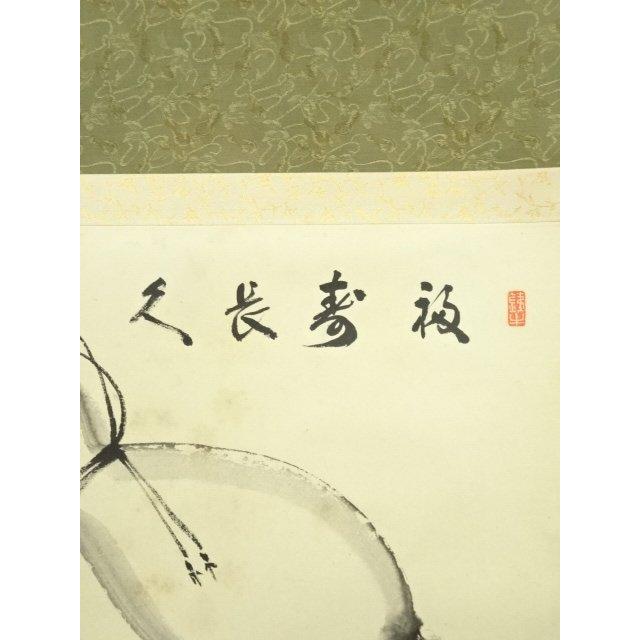 福寿長久